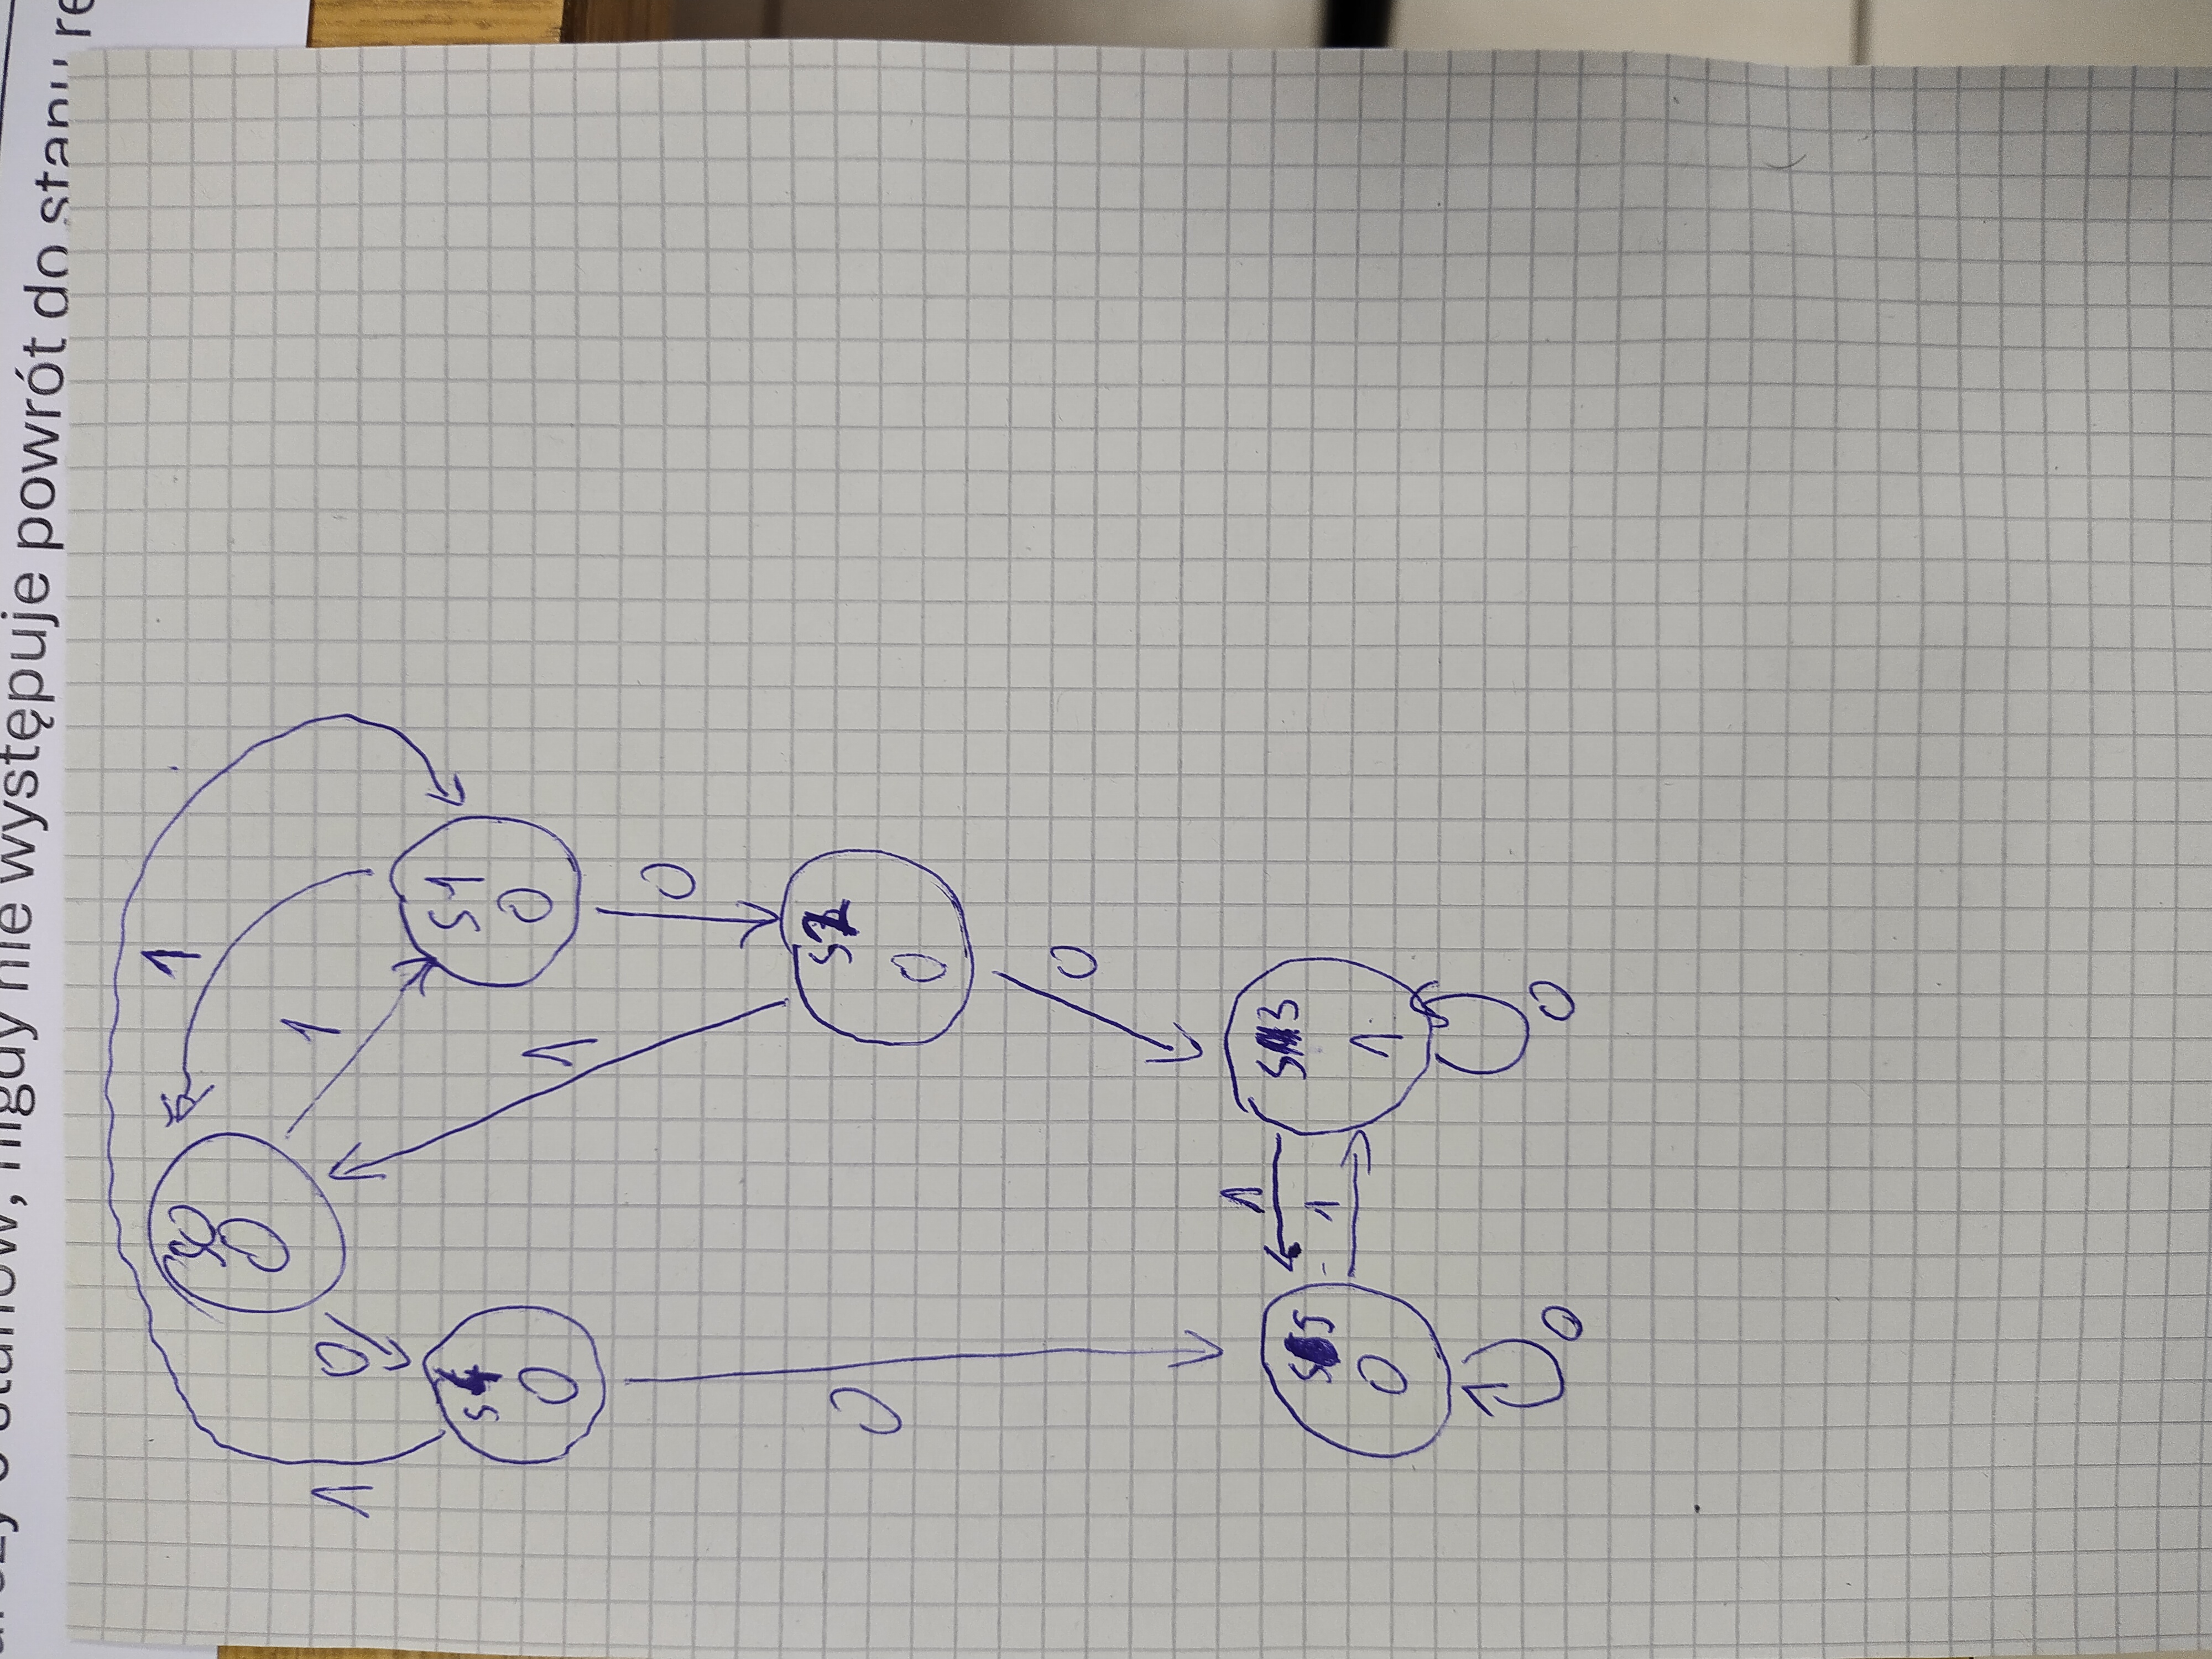 stanów, nigdy nie występuje powrót do stanu
1
S0
0
1
1
0
S4
0
S1
0
1
0
S2
0
0
0
1
S3
1
S5
0
1
0
0